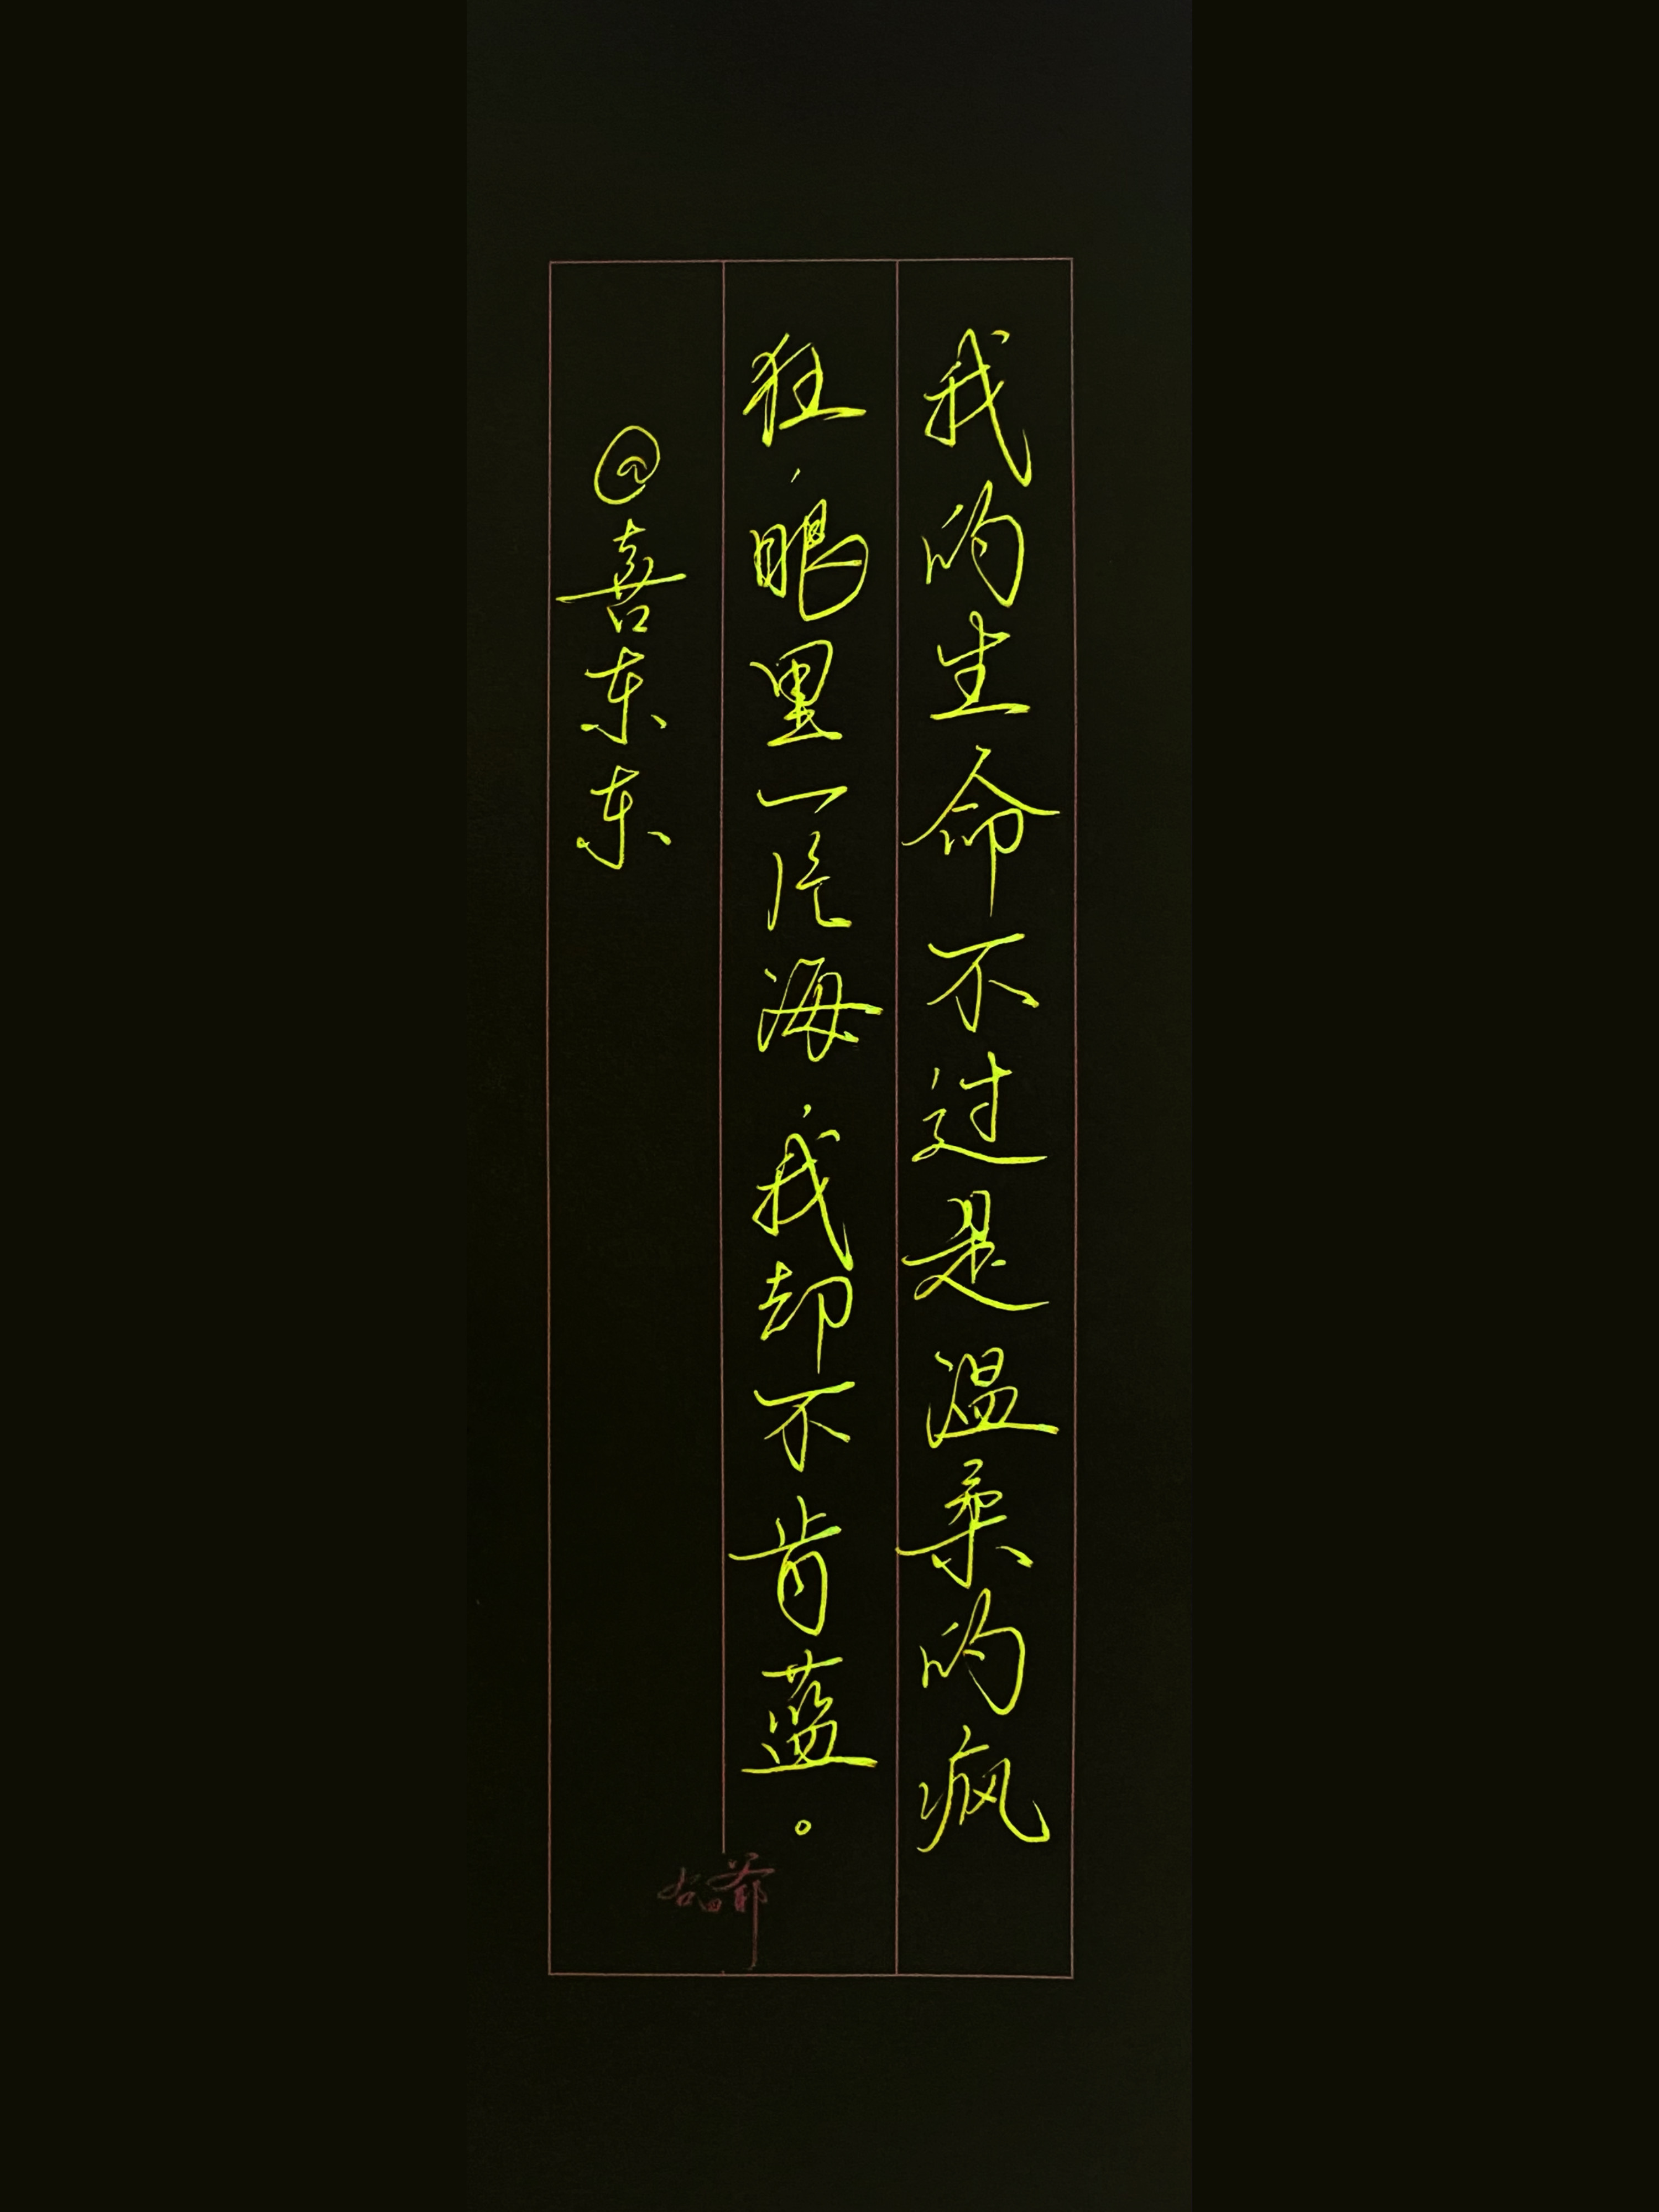 我的生命不过是温柔的疯
狂，眼里一片海，我却不肯蓝。
@喜东东